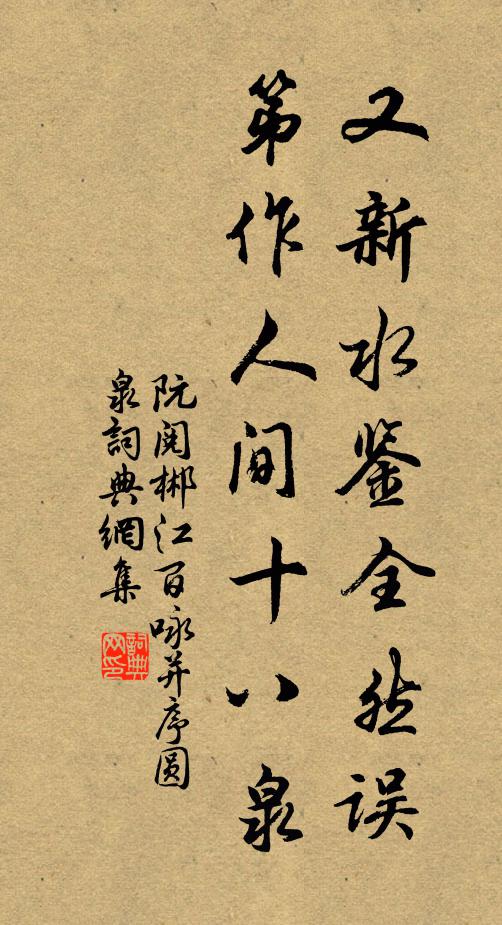 又新水鉴全然误
第作人间十八泉
阮阅郴江百咏并序圆
泉词典網集
詞典网印